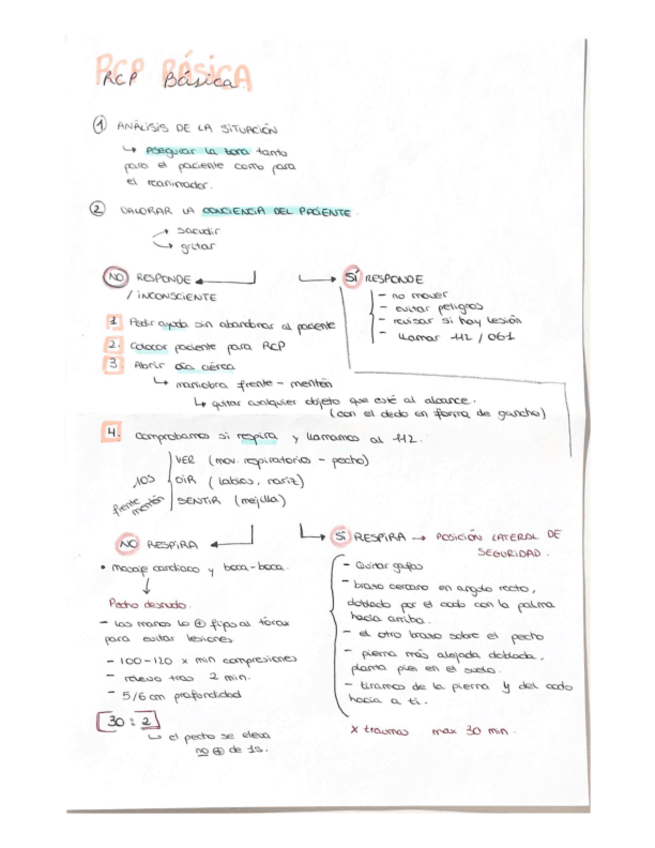 RCP BÁSICA
RCP Básica.
1 ANÁLISIS DE LA SITUACIÓN
↳ Asegurar la zona tanto
para el paciente como para
el reanimador.
2 VALORAR LA CONCIENCIA DEL PACIENTE.
→ sacudir
→ gritar
NO RESPONDE
/ INCONSCIENTE
1. Pedir ayuda sin abandonar al paciente
2. Colocar paciente para RCP
3. Abrir vía aérea
↳ maniobra frente - mentón
↳ quitar cualquier objeto que esté al alcance.
(con el dedo en forma de gancho)
SÍ RESPONDE
- no mover
- evitar peligros
- revisar si hay lesión
- llamar 112 / 061
4. Comprobamos si respira y llamamos al 112.
VER (mov. respiratorios - pecho)
10s OIR (labios, nariz)
frente mentón SENTIR (mejilla)
NO RESPIRA
• masaje cardíaco y boca-boca.
↓
Pecho desnudo.
- Las manos lo ⊕ fijas al tórax
para evitar lesiones.
- 100-120 x min compresiones
- relevo tras 2 min.
- 5/6 cm profundidad
30 : 2
↳ el pecho se eleva
no ⊕ de 1s.
SÍ RESPIRA → POSICIÓN LATERAL DE
SEGURIDAD.
- Quitar gafas
- brazo cercano en angulo recto,
doblado por el codo con la palma
hacia arriba.
- el otro brazo sobre el pecho
- pierna más alejada doblada,
planta pies en el suelo.
- tiramos de la pierna y del codo
hacia a ti.
X traumas max 30 min.